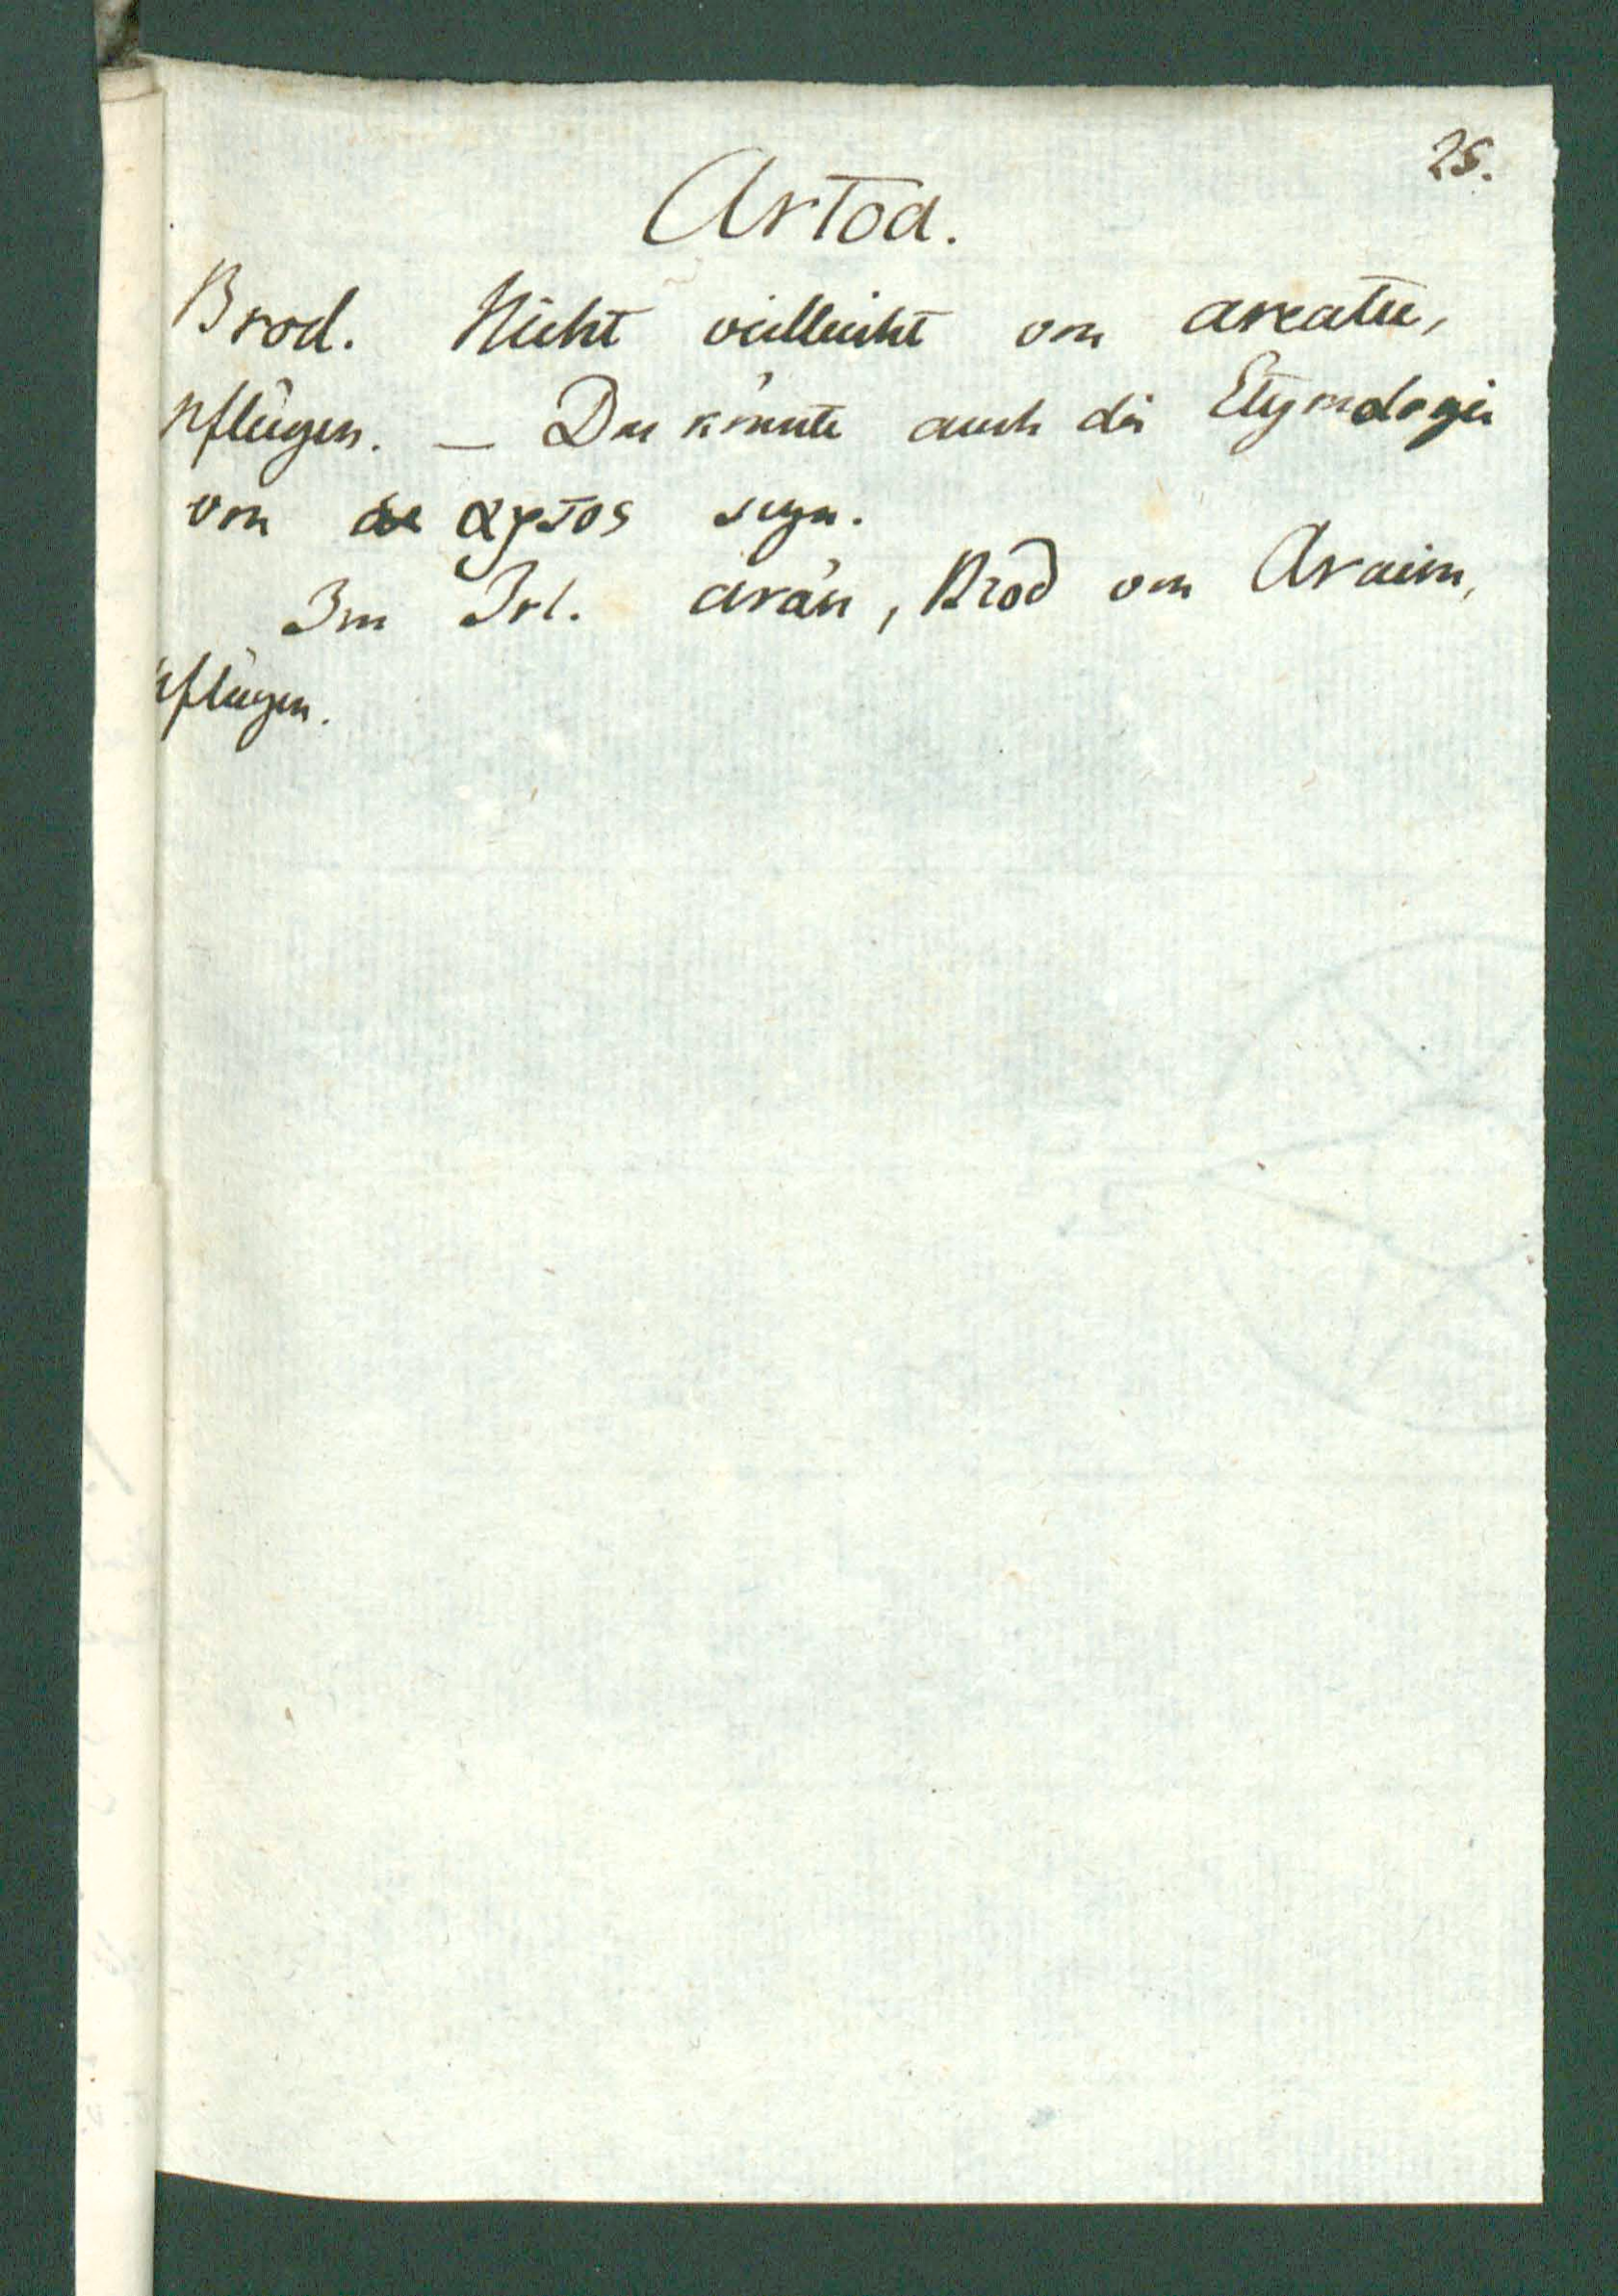 25.
Artoa.
Brod. Nicht vielleicht von areatu,
pflügen. — Das könnte auch die Etymologie
von αρτος seyn.
Im Irl. arán, Brod von Araim,
pflügen.